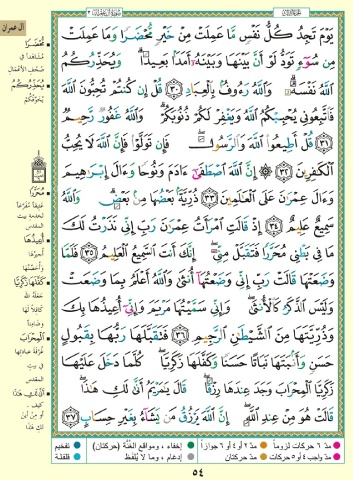 آل عمران
يَوْمَ تَجِدُ كُلُّ نَفْسٍ مَّا عَمِلَتْ مِنْ خَيْرٍ مُّحْضَرًا وَمَا عَمِلَتْ
مِن سُوٓءٍ تَوَدُّ لَوْ أَنَّ بَيْنَهَا وَبَيْنَهُۥٓ أَمَدًۢا بَعِيدًا ۗ وَيُحَذِّرُكُمُ
ٱللَّهُ نَفْسَهُۥ ۗ وَٱللَّهُ رَءُوفٌۢ بِٱلْعِبَادِ ٣٠ قُلْ إِن كُنتُمْ تُحِبُّونَ ٱللَّهَ
فَٱتَّبِعُونِى يُحْبِبْكُمُ ٱللَّهُ وَيَغْفِرْ لَكُمْ ذُنُوبَكُمْ ۗ وَٱللَّهُ غَفُورٌ رَّحِيمٌ
٣١ قُلْ أَطِيعُوا۟ ٱللَّهَ وَٱلرَّسُولَ ۖ فَإِن تَوَلَّوْا۟ فَإِنَّ ٱللَّهَ لَا يُحِبُّ
ٱلْكَٰفِرِينَ ٣٢ ۞ إِنَّ ٱللَّهَ ٱصْطَفَىٰٓ ءَادَمَ وَنُوحًا وَءَالَ إِبْرَٰهِيمَ
وَءَالَ عِمْرَٰنَ عَلَى ٱلْعَٰلَمِينَ ٣٣ ذُرِّيَّةًۢ بَعْضُهَا مِنۢ بَعْضٍ ۗ وَٱللَّهُ
سَمِيعٌ عَلِيمٌ ٣٤ إِذْ قَالَتِ ٱمْرَأَتُ عِمْرَٰنَ رَبِّ إِنِّى نَذَرْتُ لَكَ
مَا فِى بَطْنِى مُحَرَّرًا فَتَقَبَّلْ مِنِّىٓ ۖ إِنَّكَ أَنتَ ٱلسَّمِيعُ ٱلْعَلِيمُ ٣٥ فَلَمَّا
وَضَعَتْهَا قَالَتْ رَبِّ إِنِّى وَضَعْتُهَآ أُنثَىٰ وَٱللَّهُ أَعْلَمُ بِمَا وَضَعَتْ
وَلَيْسَ ٱلذَّكَرُ كَٱلْأُنثَىٰ ۖ وَإِنِّى سَمَّيْتُهَا مَرْيَمَ وَإِنِّىٓ أُعِيذُهَا بِكَ
وَذُرِّيَّتَهَا مِنَ ٱلشَّيْطَٰنِ ٱلرَّجِيمِ ٣٦ فَتَقَبَّلَهَا رَبُّهَا بِقَبُولٍ
حَسَنٍ وَأَنۢبَتَهَا نَبَاتًا حَسَنًا وَكَفَّلَهَا زَكَرِيَّا ۖ كُلَّمَا دَخَلَ عَلَيْهَا
زَكَرِيَّا ٱلْمِحْرَابَ وَجَدَ عِندَهَا رِزْقًا ۖ قَالَ يَٰمَرْيَمُ أَنَّىٰ لَكِ هَٰذَا ۖ
قَالَتْ هُوَ مِنْ عِندِ ٱللَّهِ ۖ إِنَّ ٱللَّهَ يَرْزُقُ مَن يَشَآءُ بِغَيْرِ حِسَابٍ ٣٧
مُحْضَرًا
مُشاهَداً في
صُحُفِ الأَعْمَالِ
يُحَذِّرُكُمُ
يُخَوِّفُكُمْ
مُحَرَّرًا
بيتِ
المقدس
أُعِيذُهَا
أُجيرُها
وَأُحَصِّنُها
كَفَّلَهَا زَكَرِيَّا
جَعَلَهُ الله
كافِلاً لها
وضامِناً
الْمِحْرَابَ
غُرْفَةَ عبادتِها
في بيتِ
المقدس
أَنَّىٰ لَكِ هَٰذَا
كَيفَ
أو مِنْ أينَ
لَكِ هَذا
مدّ ٦ حركات لزوماً
مدّ ٢ أو ٤ أو ٦ جوازاً
إخفاء، ومواقع الغُنَّة (حركتان)
تفخيم
مدّ واجب ٤ أو ٥ حركات
مدّ حركتان
إدغام، وما لا يُلفَظ
قلقلة
٥٤